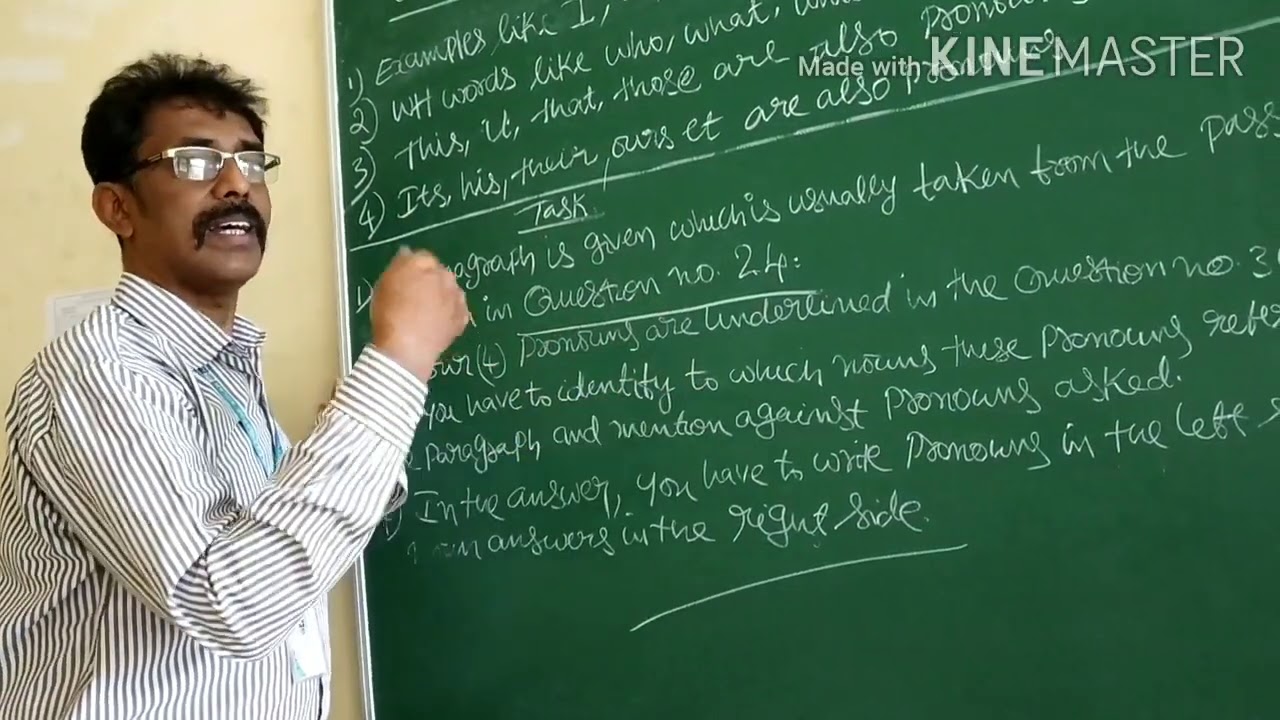 1) Examples like I,
2) WH words like who, what,
3) This, it, that, those are also pronouns
4) Its, his, their, ours et are also pronouns
Made with KINEMASTER
Task
1) paragraph is given which is usually taken from the pass
in Question no. 24:
(4) Pronouns are underlined in the Question no. 3
You have to identify to which nouns these pronouns refer
paragraph and mention against pronouns asked.
In the answer, you have to write pronouns in the left
answers in the right side.